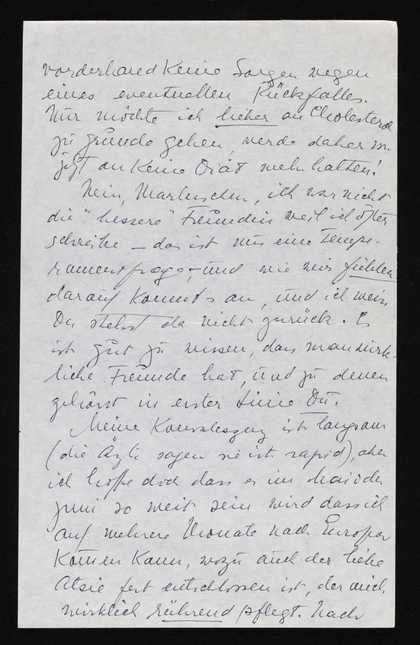 vorderhand keine Sorgen wegen
eines eventuellen Rückfalles.
Nur möchte ich lieber an Cholesterol
zu grunde gehen, werde daher in
an keine Diät mehr halten!
Nein, ich war nicht
die "bessere" Freundin weil ich öfter
schreibe – das ist nur eine Tempe-
ramentfrage, und wie wir fühlen
darauf kommt's an, und ich weiss
Du stehst da nicht zurück. Es
ist gut zu wissen, dass man wirk-
liche Freunde hat, und zu denen
gehörst in erster Linie Du.
Meine Konvaleszenz ist langsam
(die Ärzte sagen sie ist rapid), aber
ich hoffe doch dass es im Mai oder
Juni so weit sein wird dass ich
auf mehrere Monate nach Europa
kommen kann, wozu auch der liebe
fest entschlossen ist, der mich
wirklich rührend pflegt. Nach